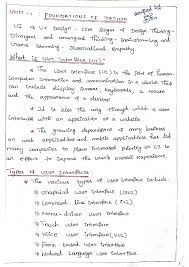 UNIT - 1
FOUNDATIONS OF DESIGN
UI vs UX Design - core stages of Design Thinking -
Divergent and convergent Thinking - Brainstorming and
Game storming - Observational Empathy
What is User Interface (UI):
The User Interface (UI) is the point of human-
computer interaction and communication in a device. This
can include display screens, keyboards, a mouse
and the appearance of a desktop.
It is also the way through which a user
interacts with an application or a website
The growing dependence of many business
on web applications and mobile applications has led
many companies to place increased priority on UI in
an effort to improve the user's overall experience.
Types of User Interfaces:
The various types of user interfaces include:
Graphical User Interface (GUI)
Command line Interface (CLI)
Menu-driven user Interface
Touch user Interface
Voice user Interface (VUI)
Form based user Interface
Natural language user Interface